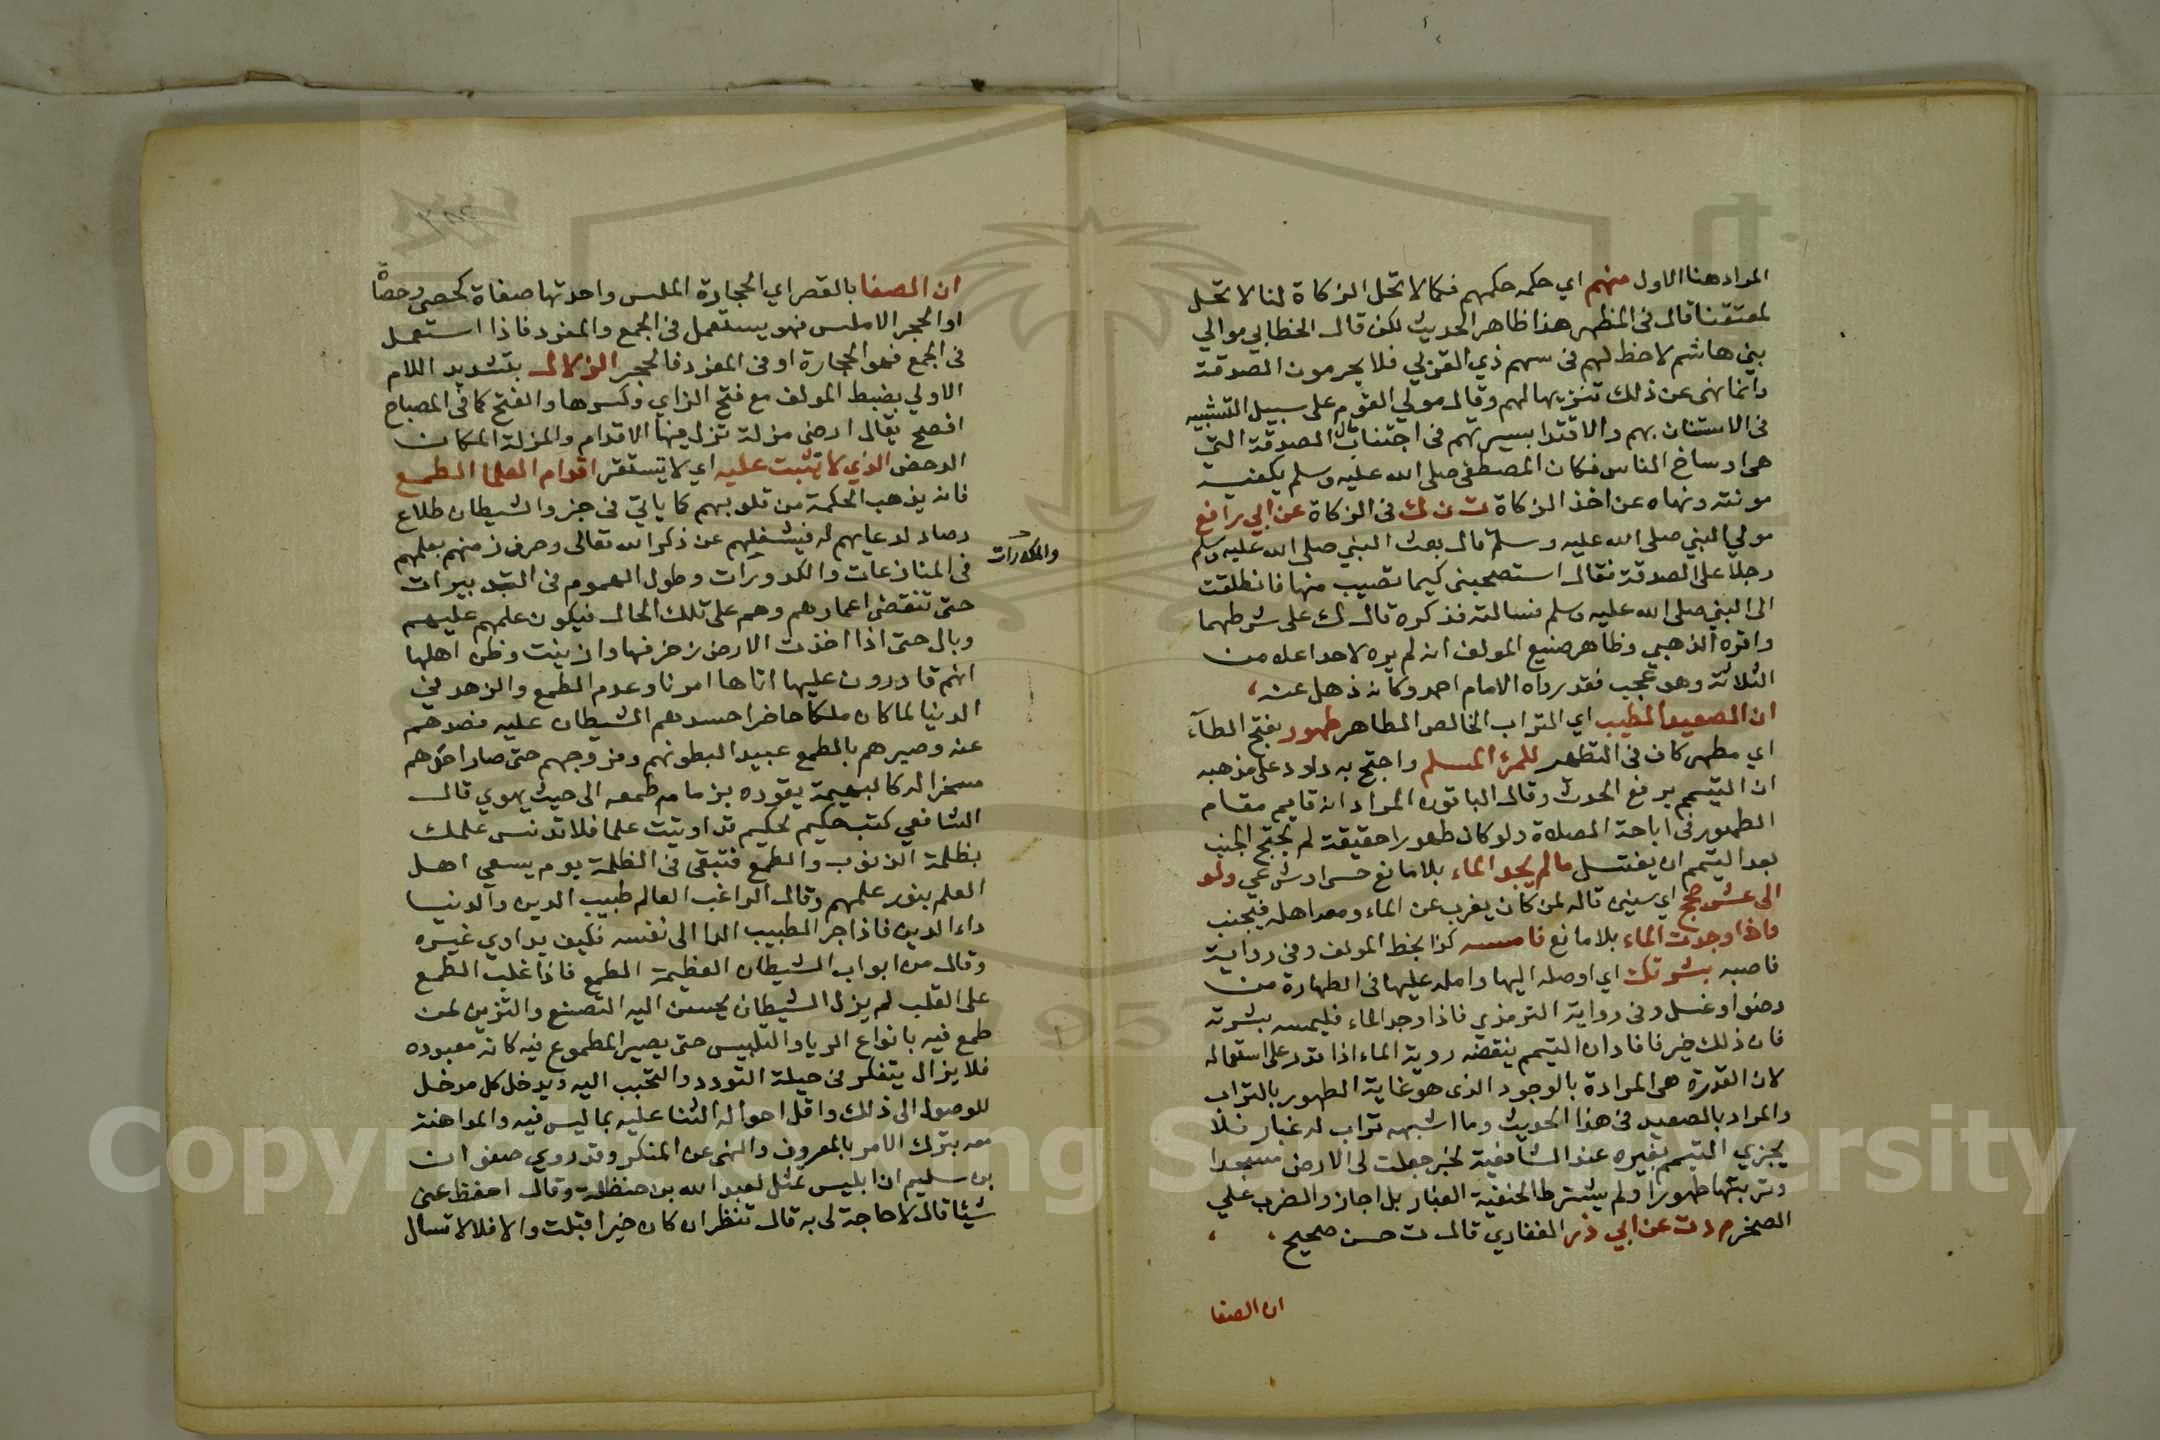 المراد هنا الاول منهم اي حكمه حكمهم فكما لا تحل الزكاة لنا لا تحل
لمعتقنا قال في المظهر هذا ظاهر الحديث لكن قال الخطابي موالي
بني هاشم لا حظ لهم في سهم ذي القربي فلا يحرمون الصدقة
وانما نهى عن ذلك تنزيها لهم وقال مولي القوم على سبيل التشبيه
في الاستنان بهم والاقتدا بسيرتهم في اجتناب مال الصدقة التي
هي اوساخ الناس فكان المصطفى صلى الله عليه وسلم يكفيه
مونته ونهاه عن اخذ الزكاة ت ن ك في الزكاة عن ابي رافع
مولي النبي صلى الله عليه وسلم قال بعث النبي صلى الله عليه وسلم
رجلا على الصدقة فقال استصحبني كيما تصيب منها فانطلقت
الى النبي صلى الله عليه وسلم فسالته فذكره قال ك على شرطهما
واقره الذهبي وظاهر صنيع المولف انه لم يره لاحد اعلا من
الثلاثة وهو عجيب فقد رواه الامام احمد وكانه ذهل عنه
ان الصعيد الطيب اي التراب الخالص الطاهر طهور بفتح الطآء
اي مطهر كاف في التطهر للمرء المسلم واحتج به داود على مذهبه
ان التيمم يرفع الحدث وقال الباقون المراد انه قايم مقام
الطهور في اباحة الصلاة ولو كان طهورا حقيقة لم يحتج الجنب
بعد التيمم ان يغتسل مالم يجد الماء بلا مانع حسي او شرعي ولو
الى عشر حجج اي سنين قاله لمن كان يغرب عن الماء ومعه اهله فيجنب
فاذا وجدت الماء بلا مانع فامسه كذا بخط المولف وفي رواية
فاصبه بشرتك اي اوصله اليها وامله عليها في الطهارة من
وضوا وغسل وفي رواية الترمذي فاذا وجد الماء فليمسه بشرته
فان ذلك خير فافاد ان التيمم ينقضه روية الماء اذا قدر على استعماله
لان القدرة هي المرادة بالوجود الذى هو غاية الطهور بالتراب
والمراد بالصعيد في هذا الحديث وما اشبهه تراب له غبار فلا
يجزي التيمم بغيره عند الشافعية لخبر جعلت لي الارض مسجدا
وتربتها طهورا ولم يشترط الحنفية الغبار بل اجاز والضرب علي
الصخر م د ت عن ابي ذر الغفاري قال ت حسن صحيح
ان الصفا
ان الصفا بالقصر اي الحجارة الملس واحدتها صفاة كحصى وحصاة
او الحجر الاملس فهو يستعمل في الجمع والمفرد فاذا استعمل
في الجمع فهو الحجارة او في المفرد فالحجر الزلال بتشديد اللام
الاولي بضبط المولف مع فتح الزاي وكسرها والفتح كما في المصباح
افصح يقال ارض مزلة تزل فيها الاقدام والمزلة المكان
الدحض الذي لا تثبت عليه اي لا يستقر اقدام العلما الطمع
فانه يذهب الحكمة من قلوبهم كما ياتي في خبر والشيطان طلاع
رصاد لدعايهم له فيشغلهم عن ذكر الله تعالى وصرف زمنهم بعلمهم
في المنازعات والكدورات وطول الهموم في التدبيرات
والمكدرات
حتى تنقضى اعمارهم وهم على تلك الحال فيكون علمهم عليهم
وبال حتى اذا اخذت الارض زخرفها وازينت وظن اهلها
انهم قادرون عليها اتاها امرنا وعدم الطمع والزهد في
الدنيا لما كان ملكا حاضرا حسدهم الشيطان عليه فصدهم
عنه وصيرهم بالطمع عبيدا لبطونهم وفروجهم حتى صار احدهم
مسخرا له كالبهيمة يقوده بزمام طمعه الى حيث يهوي قال
الشافعي كتب حكيم لحكيم قد اوتيت علما فلا تدنس علمك
بظلمة الذنوب والطمع فتبقى في الظلمة يوم يسعى اهل
العلم بنور علمهم وقال الراغب العالم طبيب الدين والدنيا
داء الدين فاذا جر الطبيب الدا الى نفسه فكيف يداوي غيره
وقال من ابواب الشيطان العظيمة الطمع فاذا غلب الطمع
على القلب لم يزل الشيطان يحسن اليه التصنع والتزين لمن
طمع فيه بانواع الريا والتلبيس حتى يصير المطموع فيه كانه معبوده
فلا يزال يتفكر في حيلة التودد والتحبب اليه ويدخل كل مدخل
للوصول الى ذلك واقل احواله الثنا عليه بما ليس فيه والمداهنة
معه بترك الامر بالمعروف والنهي عن المنكر وقد روي صفوان
بن سليم ان ابليس تمثل لعبد الله بن حنظلة وقال احفظ عني
شيئا قال لا حاجة لي به قال تنظر ان كان خيرا قبلت والا فلا لا تسال
Copyright © King Saud University
1957